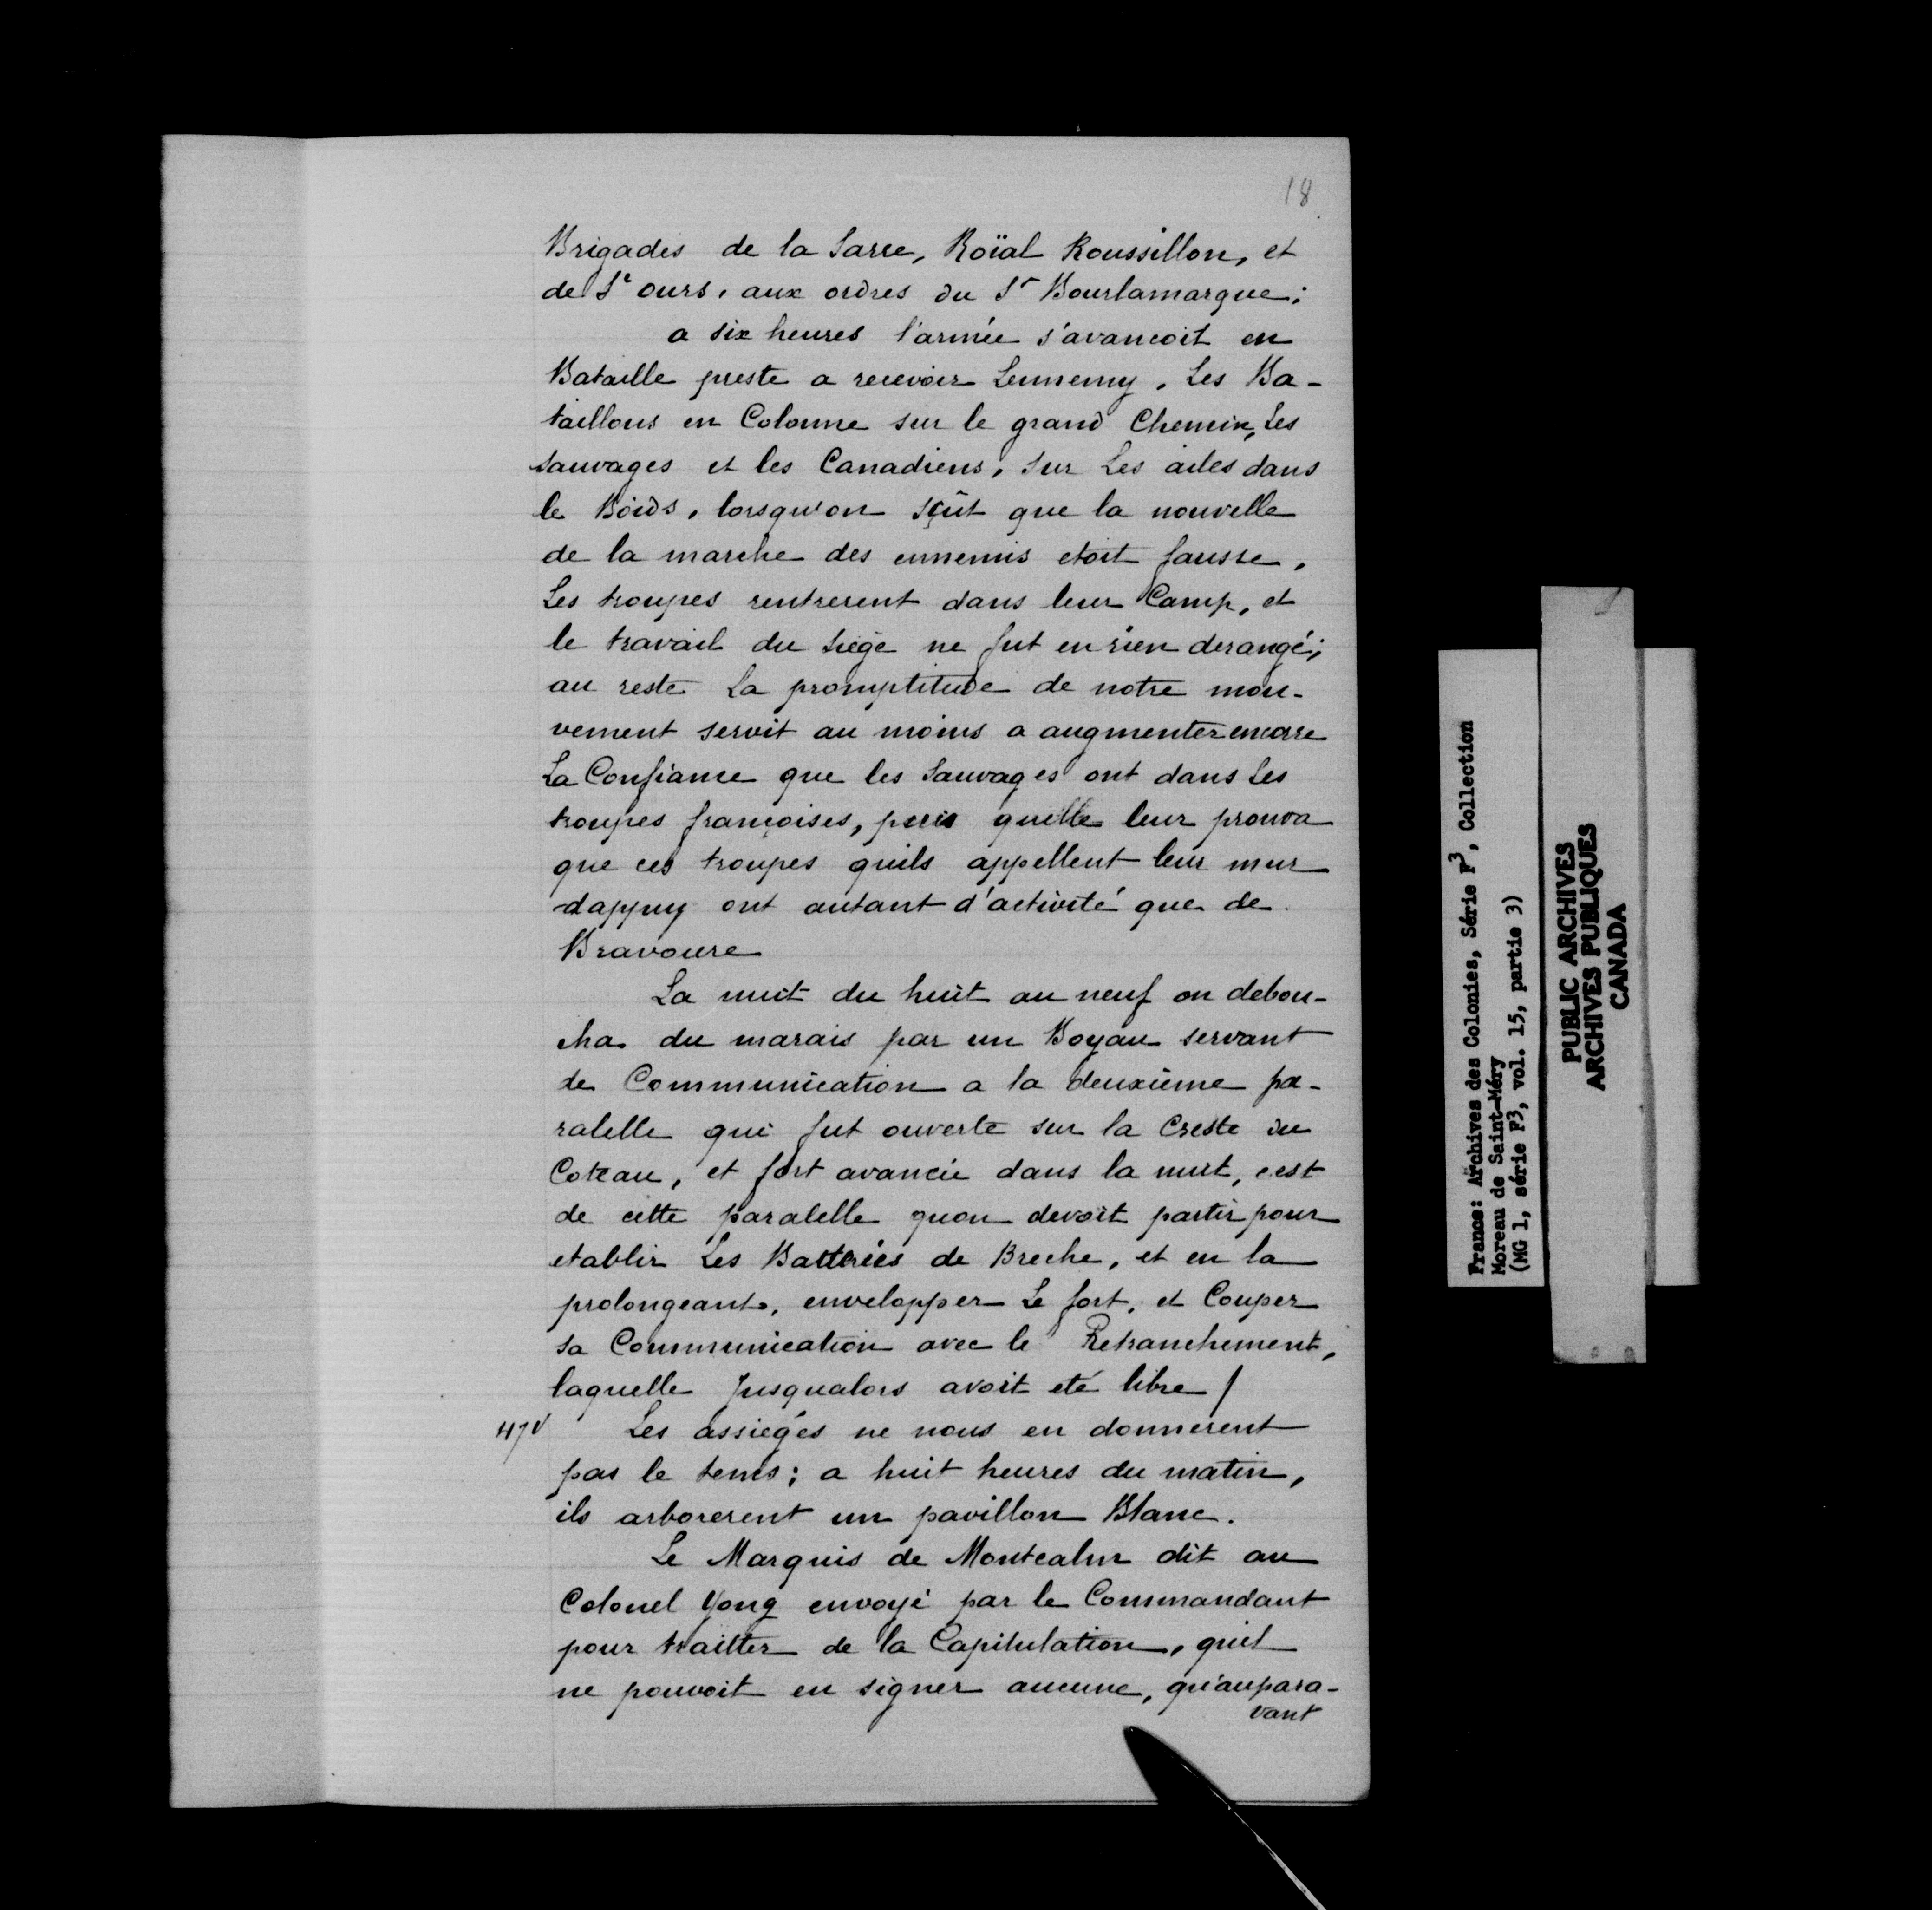 18
Brigades de la Sarre, Roïal Roussillon, et
de St ours, aux ordres du Sr Bourlamarque;
a six heures l'armée s'avancoit en
Bataille preste a recevoir Lennemy. Les Ba-
taillons en Colonne sur le grand Chemin, Les
sauvages et les Canadiens, sur Les ailes dans
le Boids, lorsqu'on sçût que la nouvelle
de la marche des ennemis etoit fausse,
Les troupes rentrerent dans leur Camp, et
le travail du siège ne fut en rien derangé;
au reste La promptitude de notre mou-
vement servit au moins a augmenter encore
La Confiance que les Sauvages ont dans Les
troupes françoises, puis quelle leur prouva
que ces troupes quils appellent leur mur
dappuy ont autant d'activité que de
Bravoure
La nuit du huit au neuf on debou-
cha du marais par un Boyau servant
de Communication a la deuxième pa-
ralelle qui fut ouverte sur la Creste du
Coteau, et fort avancée dans la nuit, c'est
de cette paralelle quon devoit partir pour
etablir Les Batteries de Breche, et en la
prolongeant, envelopper Le fort, et Couper
sa Communication avec le Retranchement,
laquelle Jusqualors avoit eté libre /
47v Les assiegés ne nous en donnerent
pas le tems; a huit heures du matin,
ils arborerent un pavillon Blanc.
Le Marquis de Montcalm dit au
Colonel Yong envoyé par le Commandant
pour traitter de la Capitulation, quil
ne pouvoit en signer aucune, qu'aupara-
vant
France: Archives des Colonies, Série F3, Collection
Moreau de Saint-Méry
(MG 1, série F3, vol. 15, partie 3)
PUBLIC ARCHIVES
ARCHIVES PUBLIQUES
CANADA